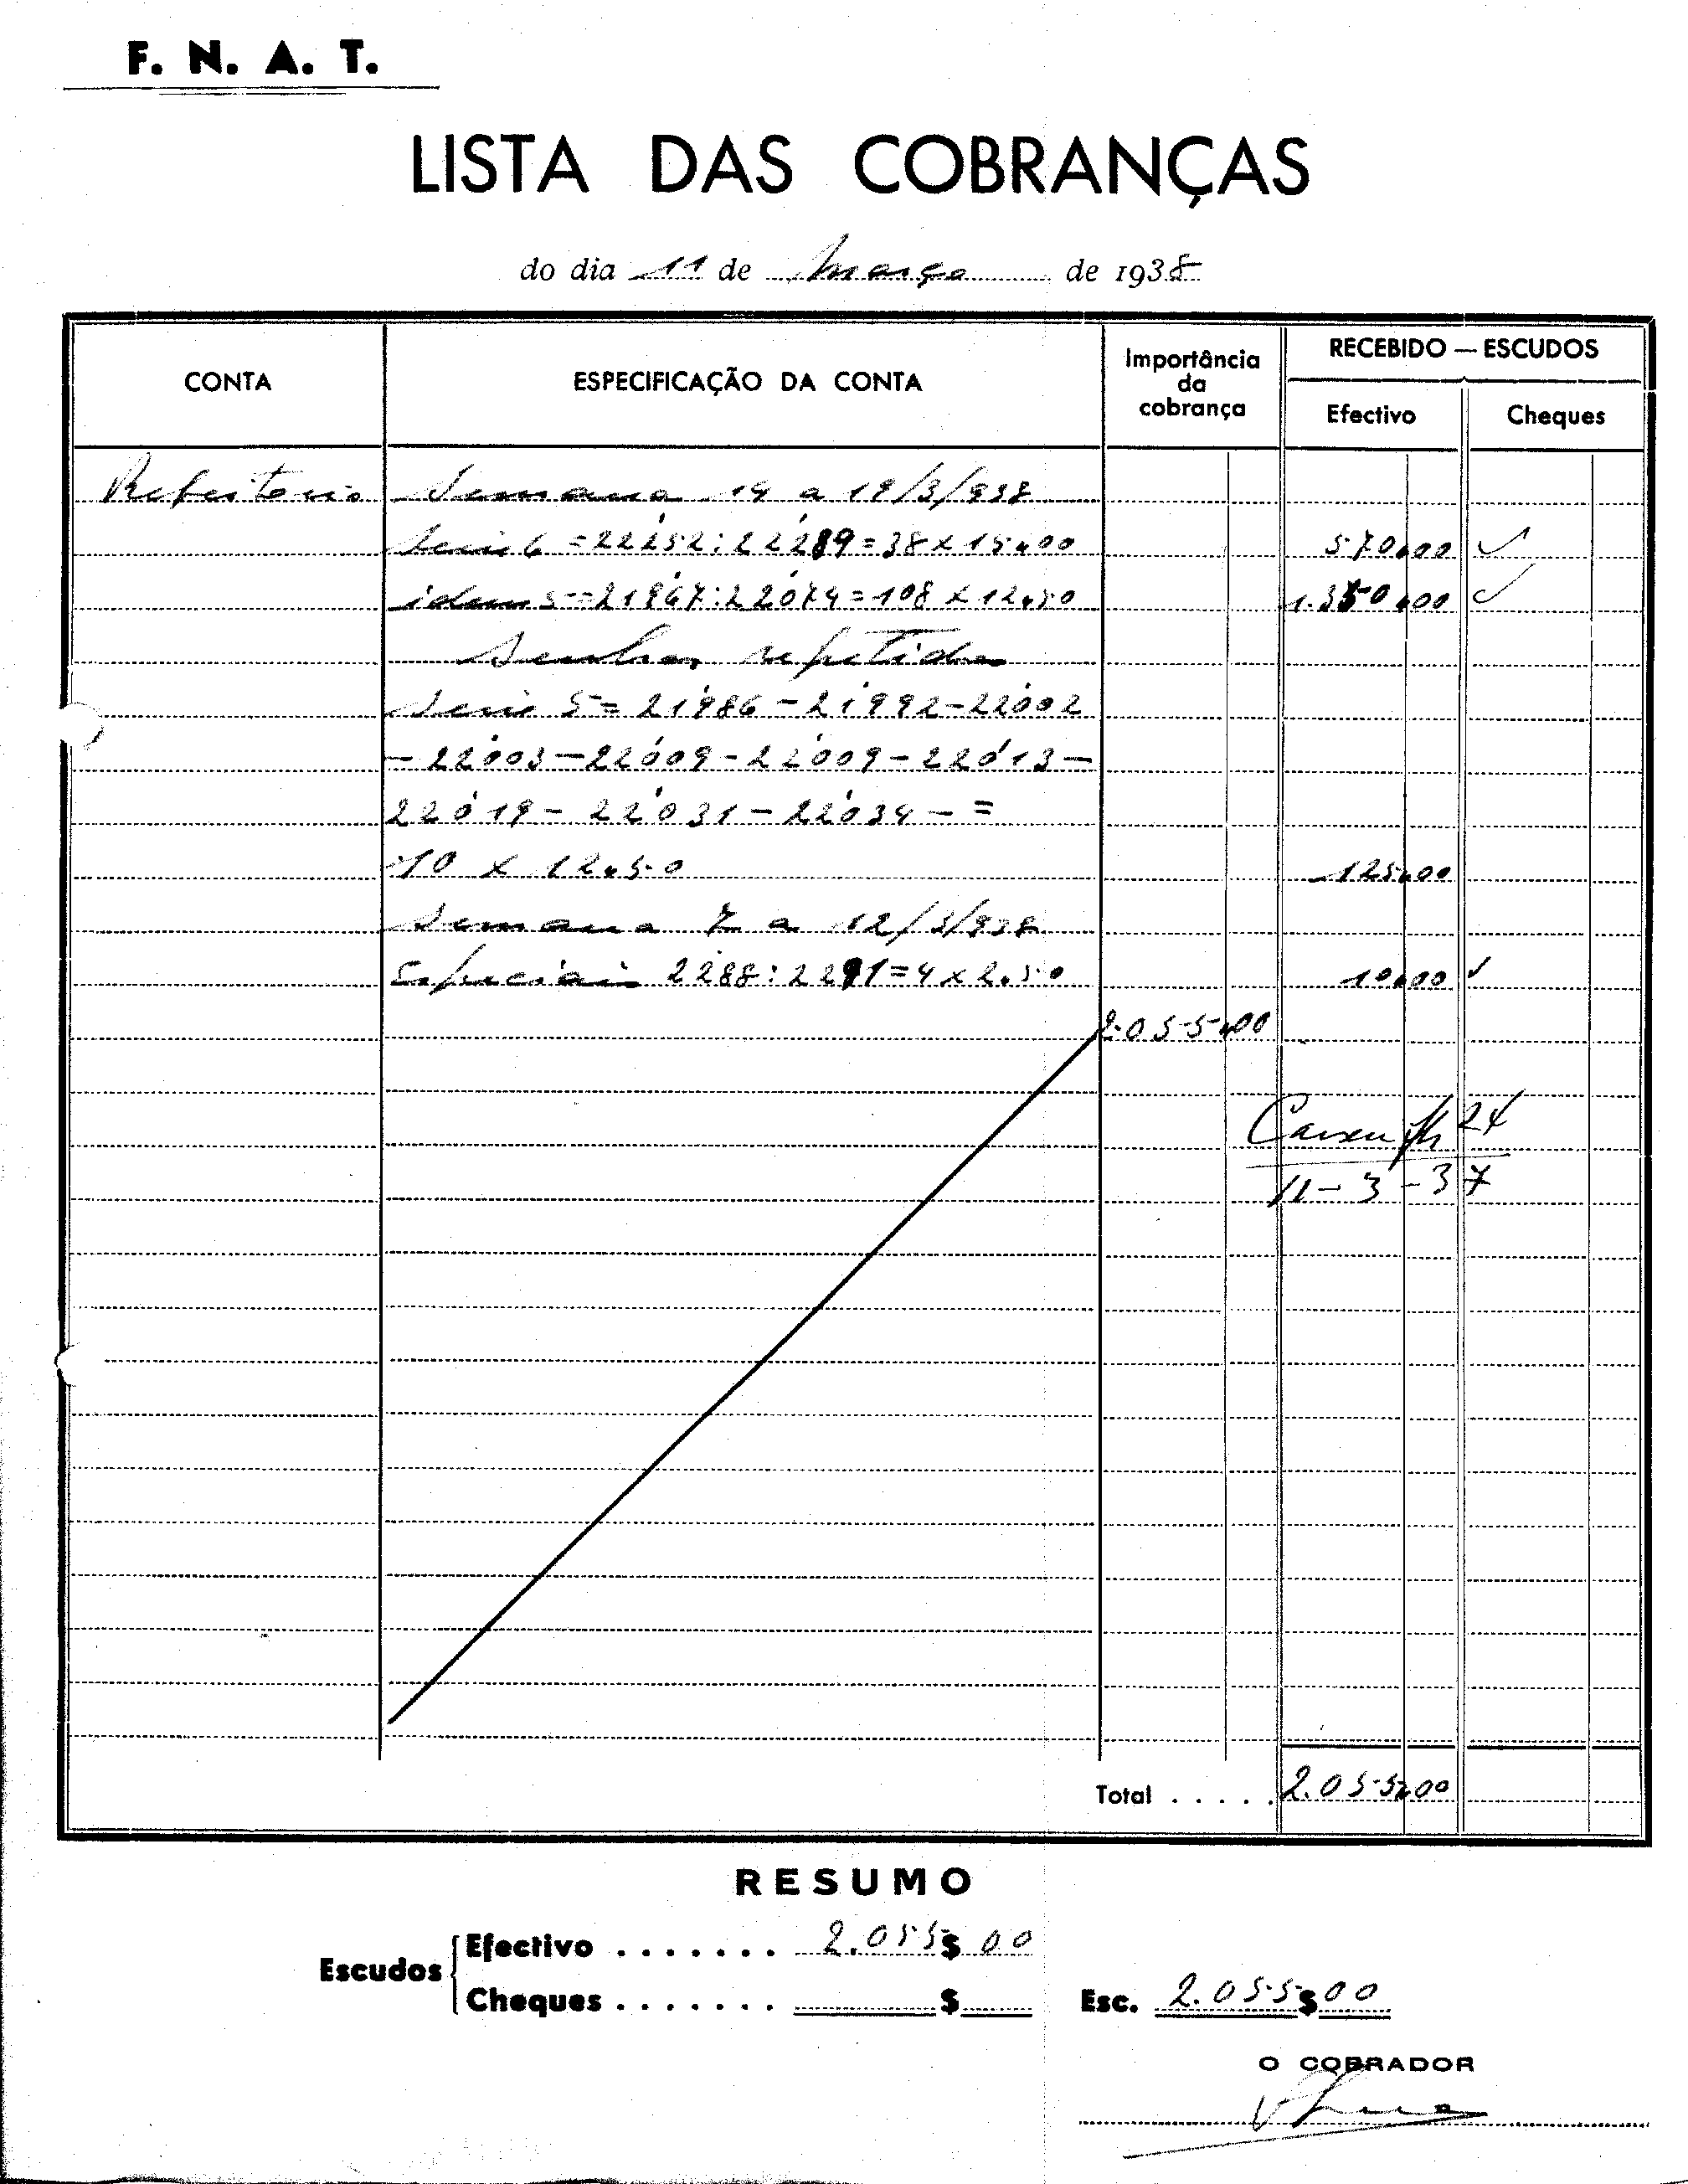 F. N. A. T.
LISTA DAS COBRANÇAS
do dia 11 de Março de 1938
CONTA
ESPECIFICAÇÃO DA CONTA
Importância da cobrança
RECEBIDO — ESCUDOS
Efectivo
Cheques
Refeitorio Semana 14 a 19/3/938
Serie 6 = 22252 : 22289 = 38 x 15$00 570$00
idem 5 = 21967 : 22074 = 108 x 12$50 1.350$00
Senhas repetidas
Serie 5 = 21986 - 21992 - 22002
- 22003 - 22009 - 22009 - 22013 -
22019 - 22031 - 22034 - =
10 x 12$50 125$00
Semana 7 a 12/3/938
Especiais 2288 : 2291 = 4 x 2$50 10$00
2.055$00
24
11-3-37
Total . . . . . 2.055$00
RESUMO
Escudos
Efectivo . . . . . . . 2.055$00
Cheques . . . . . . . $
Esc. 2.055$00
O COBRADOR